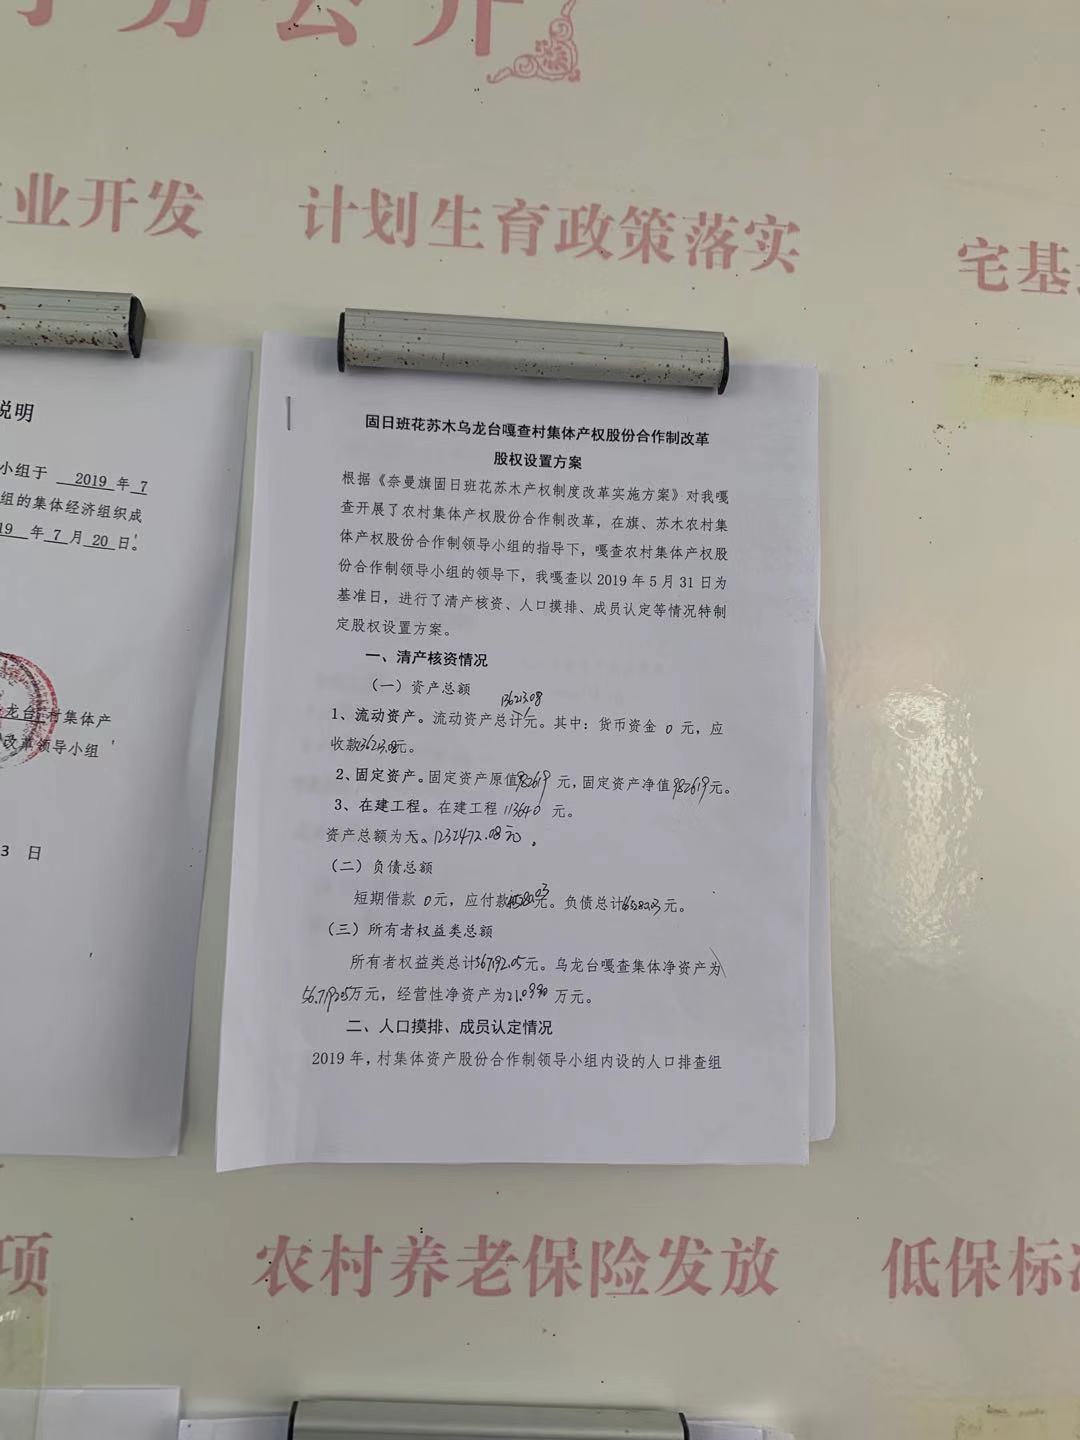 公开
业开发
计划生育政策落实
宅基
说明
小组于 2019 年 7
组的集体经济组织成
19 年 7 月 20 日。
龙台 村集体产
改革领导小组
3 日
固日班花苏木乌龙台嘎查村集体产权股份合作制改革
股权设置方案
根据《奈曼旗固日班花苏木产权制度改革实施方案》对我嘎
查开展了农村集体产权股份合作制改革，在旗、苏木农村集
体产权股份合作制领导小组的指导下，嘎查农村集体产权股
份合作制领导小组的领导下，我嘎查以 2019 年 5 月 31 日为
基准日，进行了清产核资、人口摸排、成员认定等情况特制
定股权设置方案。
一、清产核资情况
（一）资产总额
136213.08
1、流动资产。流动资产总计元。其中：货币资金 0 元，应
收款136213.08元。
2、固定资产。固定资产原值982619 元，固定资产净值982619元。
3、在建工程。在建工程 113640 元。
资产总额为 1232472.08元。
（二）负债总额
短期借款 0元，应付款 元。负债总计 元。
（三）所有者权益类总额
所有者权益类总计567192.05元。乌龙台嘎查集体净资产为
56.719205万元，经营性净资产为 万元。
二、人口摸排、成员认定情况
2019 年，村集体资产股份合作制领导小组内设的人口排查组
项
农村养老保险发放
低保标